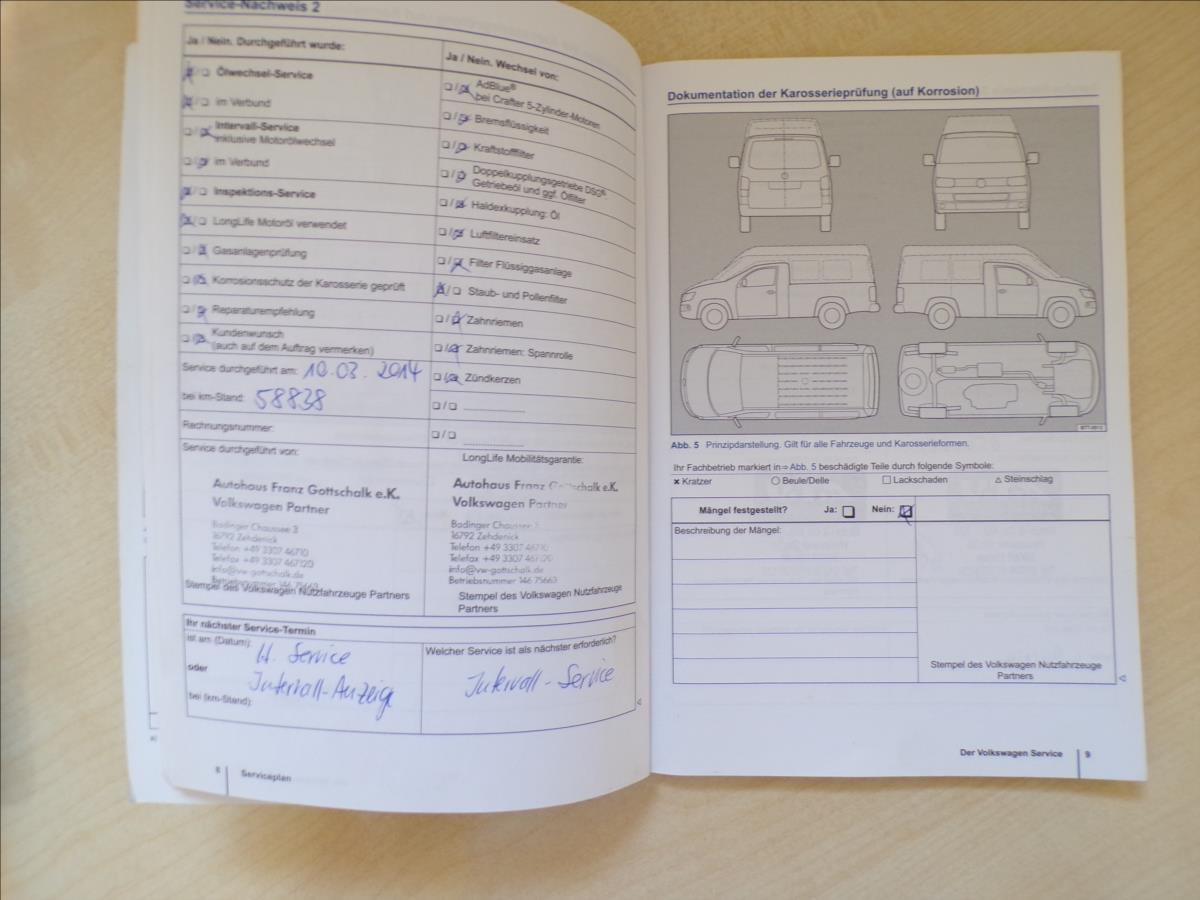 Service-Nachweis 2
Ja / Nein. Durchgeführt wurde:
Ölwechsel-Service
im Verbund
Intervall-Service
inklusive Motorölwechsel
im Verbund
Inspektions-Service
LongLife Motoröl verwendet
Gasanlagenprüfung
Korrosionsschutz der Karosserie geprüft
Reparaturempfehlung
Kundenwunsch
(auch auf dem Auftrag vermerken)
Service durchgeführt am: 10.03.2014
bei km-Stand: 58838
Rechnungsnummer:
Service durchgeführt von:
Autohaus Franz Gottschalk e.K.
Volkswagen Partner
Badinger Chaussee 3
16792 Zehdenick
Telefon +49 3307 46710
Telefax +49 3307 467120
info@vw-gottschalk.de
Betriebsnummer 146 75663
Stempel des Volkswagen Nutzfahrzeuge Partners
Ja / Nein. Wechsel von:
AdBlue®
bei Crafter 5-Zylinder-Motoren
Bremsflüssigkeit
Kraftstofffilter
Doppelkupplungsgetriebe DSG®
Getriebeöl und ggf. Ölfilter
Haldexkupplung: Öl
Luftfiltereinsatz
Filter Flüssiggasanlage
Staub- und Pollenfilter
Zahnriemen
Zahnriemen: Spannrolle
Zündkerzen
LongLife Mobilitätsgarantie:
Autohaus Franz Gottschalk e.K.
Volkswagen Partner
Badinger Chaussee 3
16792 Zehdenick
Telefon +49 3307 46710
Telefax +49 3307 467120
info@vw-gottschalk.de
Betriebsnummer 146 75663
Stempel des Volkswagen Nutzfahrzeuge
Partners
Ihr nächster Service-Termin
ist am (Datum):
lt. Service
oder
Intervall-Anzeige
bei (km-Stand):
Welcher Service ist als nächster erforderlich?
Intervall-Service
8 Serviceplan
Dokumentation der Karosserieprüfung (auf Korrosion)
Abb. 5 Prinzipdarstellung. Gilt für alle Fahrzeuge und Karosserieformen.
Ihr Fachbetrieb markiert in ⇒ Abb. 5 beschädigte Teile durch folgende Symbole:
× Kratzer ○ Beule/Delle □ Lackschaden △ Steinschlag
Mängel festgestellt? Ja: Nein:
Beschreibung der Mängel:
Stempel des Volkswagen Nutzfahrzeuge
Partners
Der Volkswagen Service 9